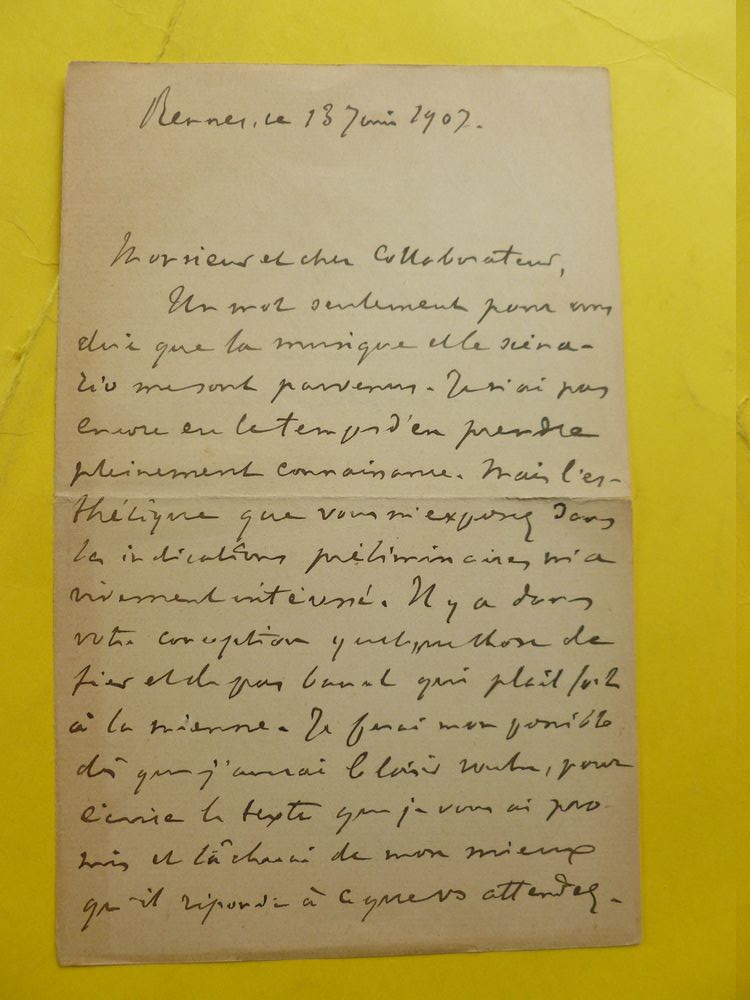 Rennes, le 13 Juin 1907.
Monsieur et cher Collaborateur,
Un mot seulement pour vous
dire que la musique et le scéna-
rio me sont parvenus. Je n'ai pas
encore eu le temps d'en prendre
pleinement connaissance. Mais l'es-
thétique que vous m'exposez dans
les indications préliminaires m'a
vivement intéressé. Il y a dans
votre conception quelque chose de
fier et de pas banal qui plaît fort
à la mienne. Je ferai mon possible
dès que j'aurai le loisir voulu, pour
écrire le texte que je vous ai pro
mis et tâcherai de mon mieux
qu'il réponde à ce que vs attendez.